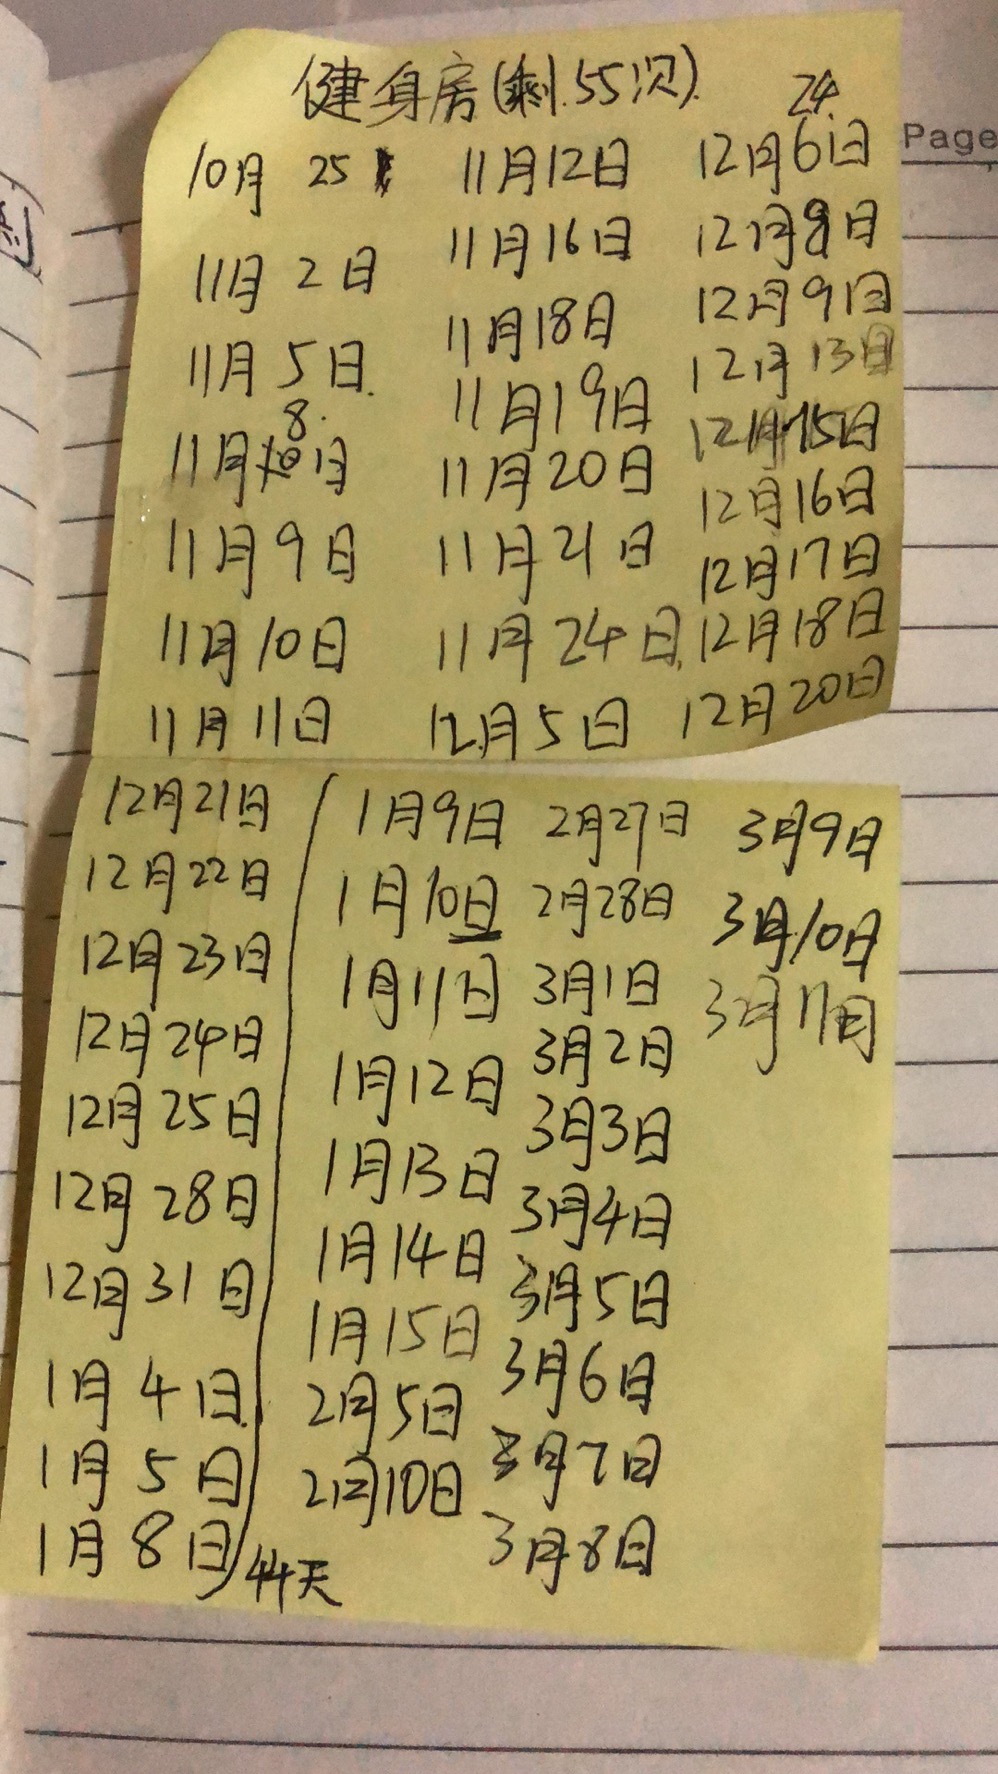 健身房(剩.55次).
24.
Page
10月 25
11月 2 日
11月 5日.
8.
11月10日
11月 9 日
11月 10日
11月 11日
11月12日
11月16日
11月18日
11月19日
11月20日
11月21日
11月24日.
12月5日
12月6日
12月8日
12月9日
12月13日
12月15日
12月16日
12月17日
12月18日
12月20日
12月21日
12月22日
12月23日
12月24日
12月25日
12月28日
12月31日
1月 4 日.
1月 5 日
1月 8 日
44天
1月9日
1月10日
1月11日
1月12日
1月13日
1月14日
1月15日
2月5日
2月10日
2月27日
2月28日
3月1日
3月2日
3月3日
3月4日
3月5日
3月6日
3月7日
3月8日
3月9日
3月10日
3月11日